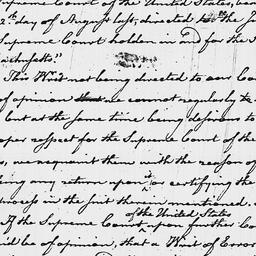 Supreme Court of the United States, bea
2th day of August last, directed to the Ju
Supreme Court holden in and for the
achusetts."
This Writ not being directed to our Co
of opinion that we cannot regularly to
but at the same time being desirous to
oper respect for the Supreme Court of the
s, we acquaint them with the reason of
king any return upon it, or certifying the
process in the suit therein mentioned.
of the United States
If the Supreme Court, upon further Co
ld be of opinion, that a Writ of Error